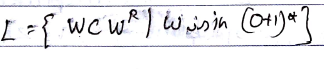 L = { WCW^R | W is in (0+1)* }